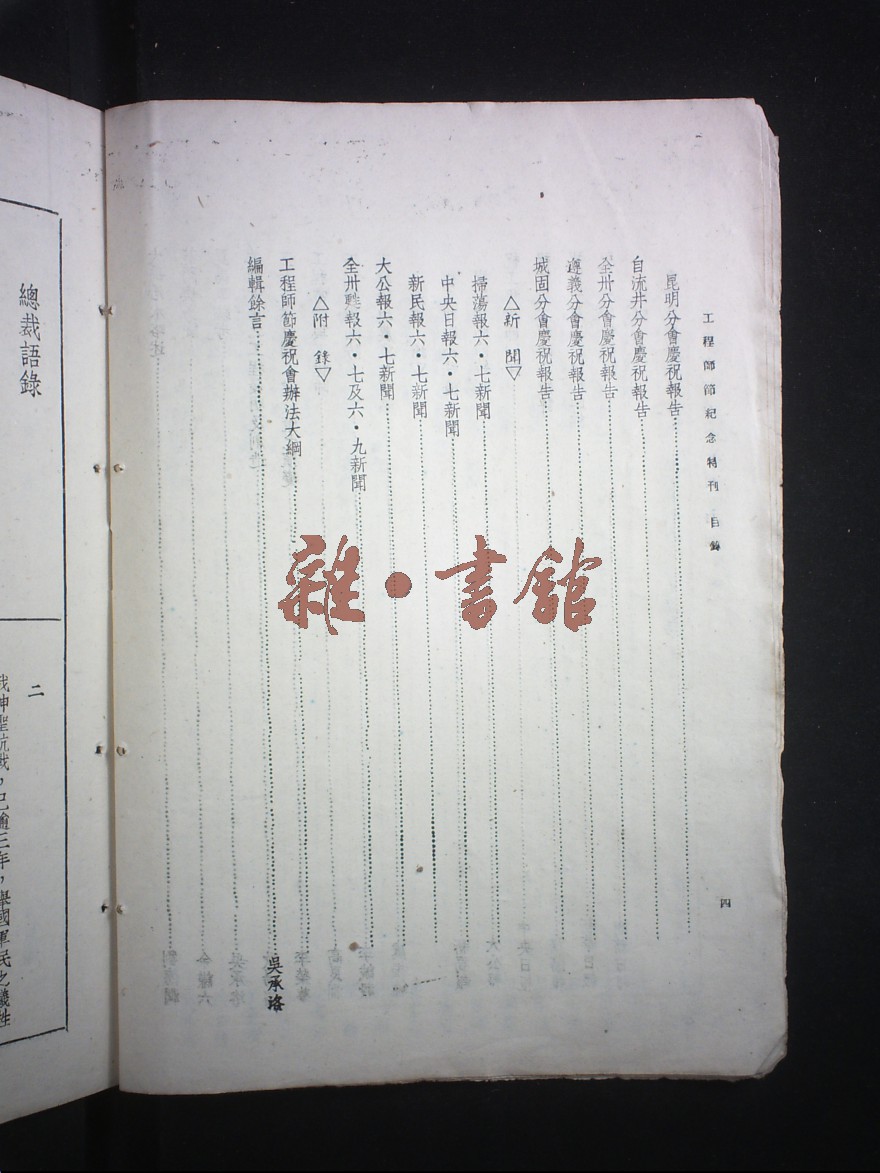 工程師節紀念特刊 目錄
四
昆明分會慶祝報告
自流井分會慶祝報告
全州分會慶祝報告
遵義分會慶祝報告
城固分會慶祝報告
△新 聞▽
掃蕩報六・七新聞
中央日報六・七新聞
新民報六・七新聞
大公報六・七新聞
全州甦報六・七及六・九新聞
△附 錄▽
工程師節慶祝會辦法大綱
編輯餘言 吳承洛
雜・書館
總裁語錄
二
我神聖抗戰，已逾三年，舉國軍民之犧牲